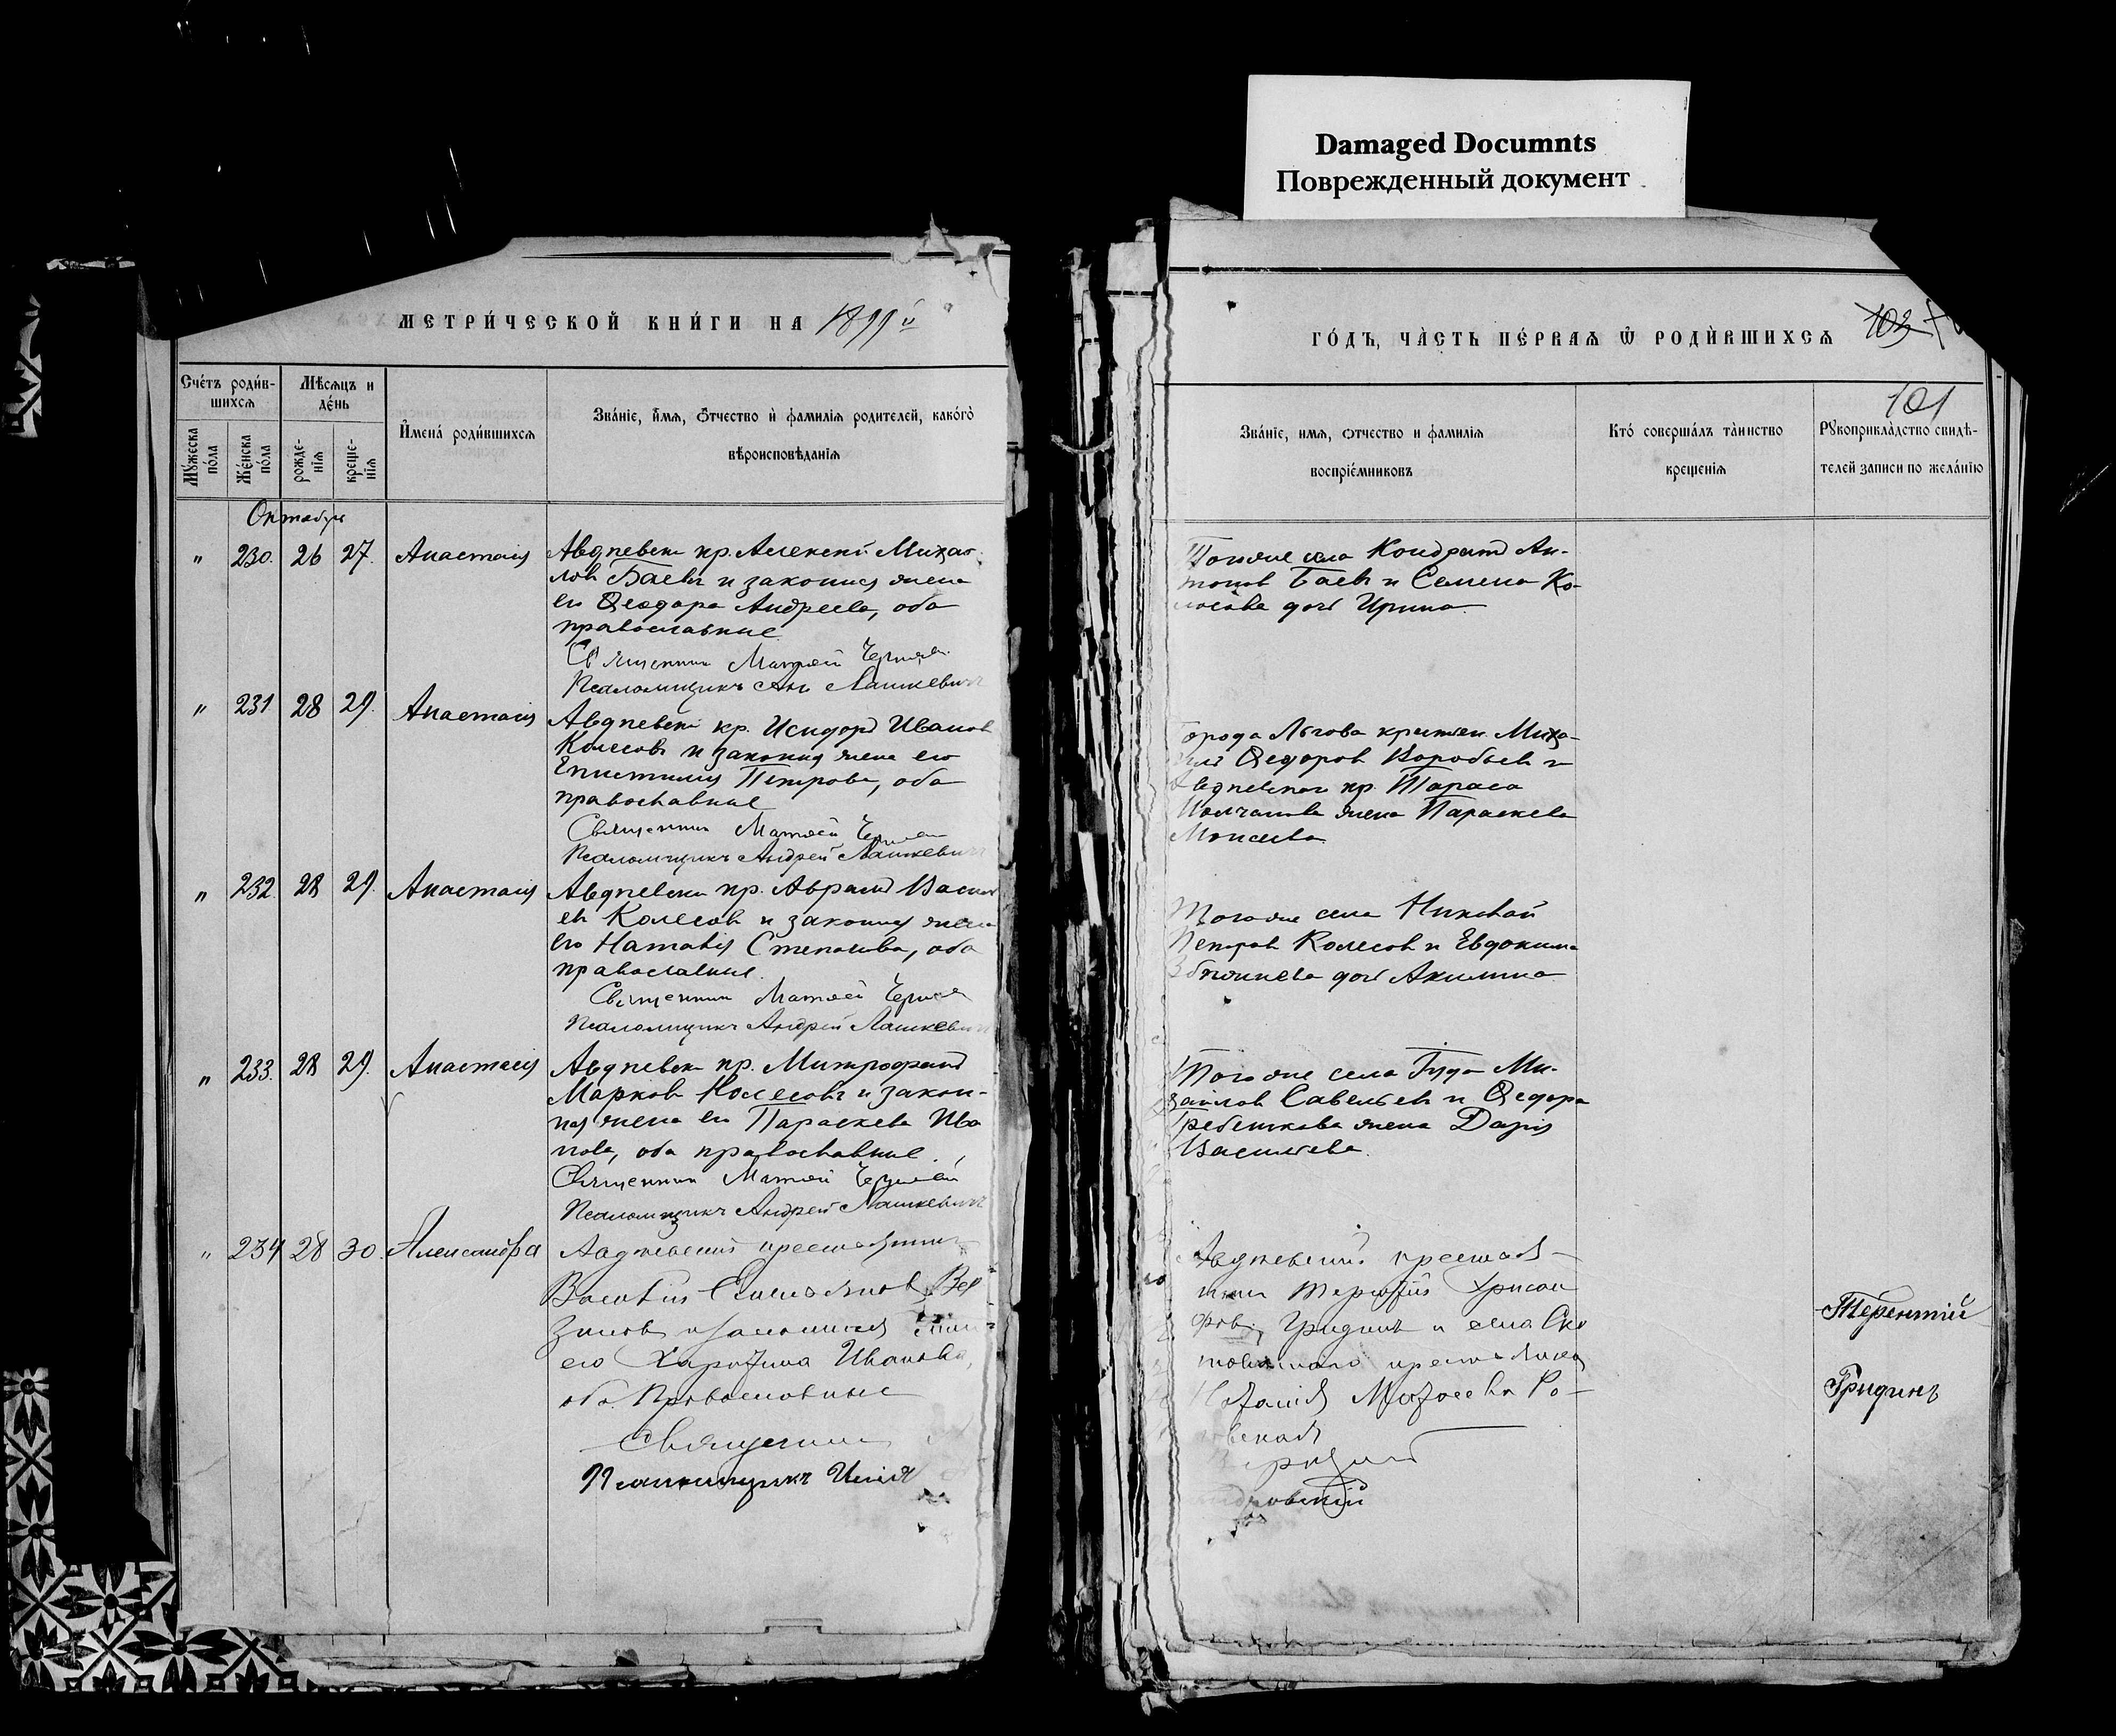 Damaged Documnts
Поврежденный документ
МЕТРИ́ЧЕСКОЙ КНИ́ГИ НА 1899й
ГО́ДЪ, ЧА̀СТЬ ПЕ́РВАѦ Ѡ҆ РОДИ́ВШИХСѦ 103
101
Счéтъ роди́в-
шихсѧ
Мѣ́сѧцъ и
де́нь
Мꙋ́жеска
по́ла
Же́нска
по́ла
рожде-
нїѧ
креще-
нїѧ
И҆мена́ роди́вшихсѧ
Зва́нїе, и҆́мѧ, ѻ҆́тчество и҆ фамилїѧ родителей, како́гѡ
вѣроисповѣ́данїѧ
Зва́нїе, имѧ, ѻтчество и фамилїѧ
воспрїе́мниковъ
Кто́ соверша́лъ та́инство
крещенїѧ
Рꙋкоприкла́дство свидѣ-
телей записи по жела́нїю
Октябрь
" 230. 26 27. Анастасія
Авдѣевскій кр. Алексей Михай-
ловъ Баевъ и законная жена
его Ѳеодора Андреева, оба
православные
Священникъ Матѳей
Псаломщикъ Анд Лашкевичъ
Тогоже села Кондратъ Ан-
тоновъ Баевъ и Семена Ко-
лосова дочь Ирина
" 231. 28 29. Анастасія
Авдѣевскій кр. Исидоръ Ивановъ
Колесовъ и законная жена его
Епистимія Петрова, оба
православные
Священникъ Матѳей
Псаломщикъ Андрей Лашкевичъ
Города Льгова крестьян. Миха-
илъ Ѳедоровъ Воробьевъ и
Авдѣевскаго кр. Тараса
жена Параскева
Моисеева
" 232. 28 29. Анастасія
Авдѣевскій кр. Аврамъ Василь
евъ Колесовъ и законная жена
его Наталія Степанова, оба
православные.
Священникъ Матѳей
Псаломщикъ Андрей Лашкевичъ
Тогоже села Николай
Петровъ Колесовъ и Евдокима
дочь Акилина
" 233. 28 29. Анастасія
Авдѣевскій кр. Митрофанъ
Марковъ Колесовъ и закон-
ная жена его Параскева Ива
нова, оба православные.
Священникъ Матѳей
Псаломщикъ Андрей Лашкевичъ
Тогоже села Гуда Ми-
хайловъ Савельевъ и Ѳедора
Гребенкова жена Дарія
Васильева.
" 234 28 30. Александра
Авдѣевскій крестьянинъ
Василій
его Харитина Иванова,
оба Православные
Священникъ
Псаломщикъ Илія
Авдѣевскій крестья-
нинъ Терентій Хрисан
фовъ Гридинъ и села
крестьянка
Наталія Матѳеева Ро-
вская
Терентій
Гридинъ